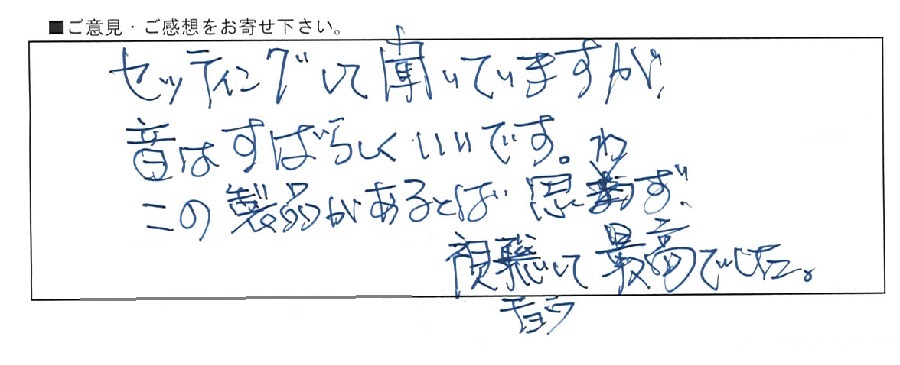 ■ご意見・ご感想をお寄せ下さい。
セッティングして聞いていますが、
音はすばらしくいいです。
この製品があるとは思わず、
視聴して最高でした。
チョウ